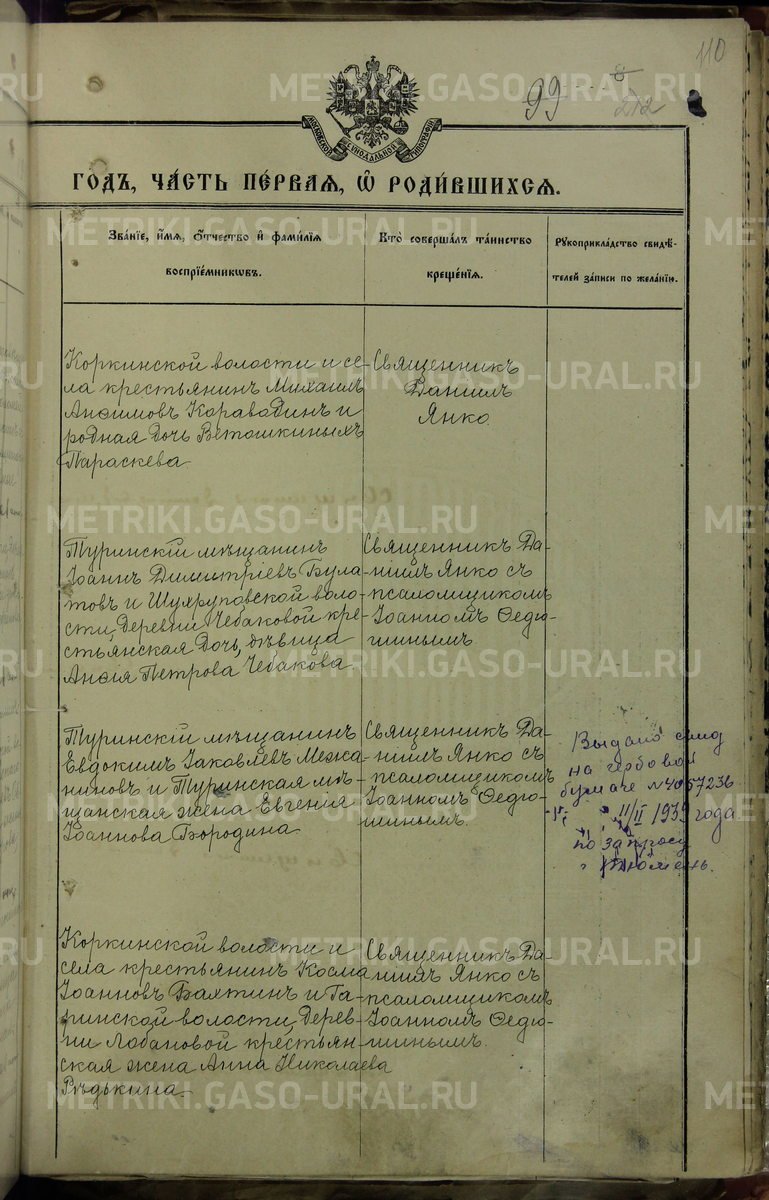 110
99
212
МОСКОВСКОЙ СИНОДАЛЬНОЙ ТИПОГРАФІИ
ГОДЪ, ЧА́СТЬ ПЕ́РВАЯ, Ѡ҆ РОДИ́ВШИХСЯ.
Зва́нїе, и҆́мѧ, ѻ҆́тчество и҆ фами́лїѧ
воспрїе́мникѡвъ.
Кто̀ соверша́лъ та́инство
креще́нїѧ.
Рꙋкоприкла́дство свидѣ́-
телей за́писи по жела́нїю.
Коркинской волости и се-
ла крестьянинъ Михаилъ
Анѳимовъ Караводинъ и
родная дочь Ветошкиныхъ
Параскева.
Священникъ
Даніилъ
Янко.
Туринскій мѣщанинъ
Іоаннъ Димитріевъ Була-
товъ и Шухруповской воло-
сти, деревни Чебаковой кре-
стьянская дочь, дѣвица
Анѳія Петрова Чебакова.
Священникъ Да-
ніилъ Янко съ
псаломщикомъ
Іоанномъ Ѳедю-
шинымъ
Туринскій мѣщанинъ
Евдокимъ Іаковлевъ Межа-
ниновъ и Туринская мѣ-
щанская жена Евгенія
Іоаннова Бородина
Священникъ Да-
ніилъ Янко съ
псаломщикомъ
Іоанномъ Ѳедю-
шинымъ.
Выдано
на гербовой
бумаге №4057236
11/II 1939 года
по запросу
г Тюмень.
Коркинской волости и
села крестьянинъ Косма
Іоанновъ Бахтинъ и Та-
ринской волости, дерев-
ни Лобановой крестьян-
ская жена Анна Николаева
Рѣдькина.
Священникъ Да-
ніилъ Янко съ
псаломщикомъ
Іоанномъ Ѳедю-
шинымъ.
METRIKI.GASO-URAL.RU